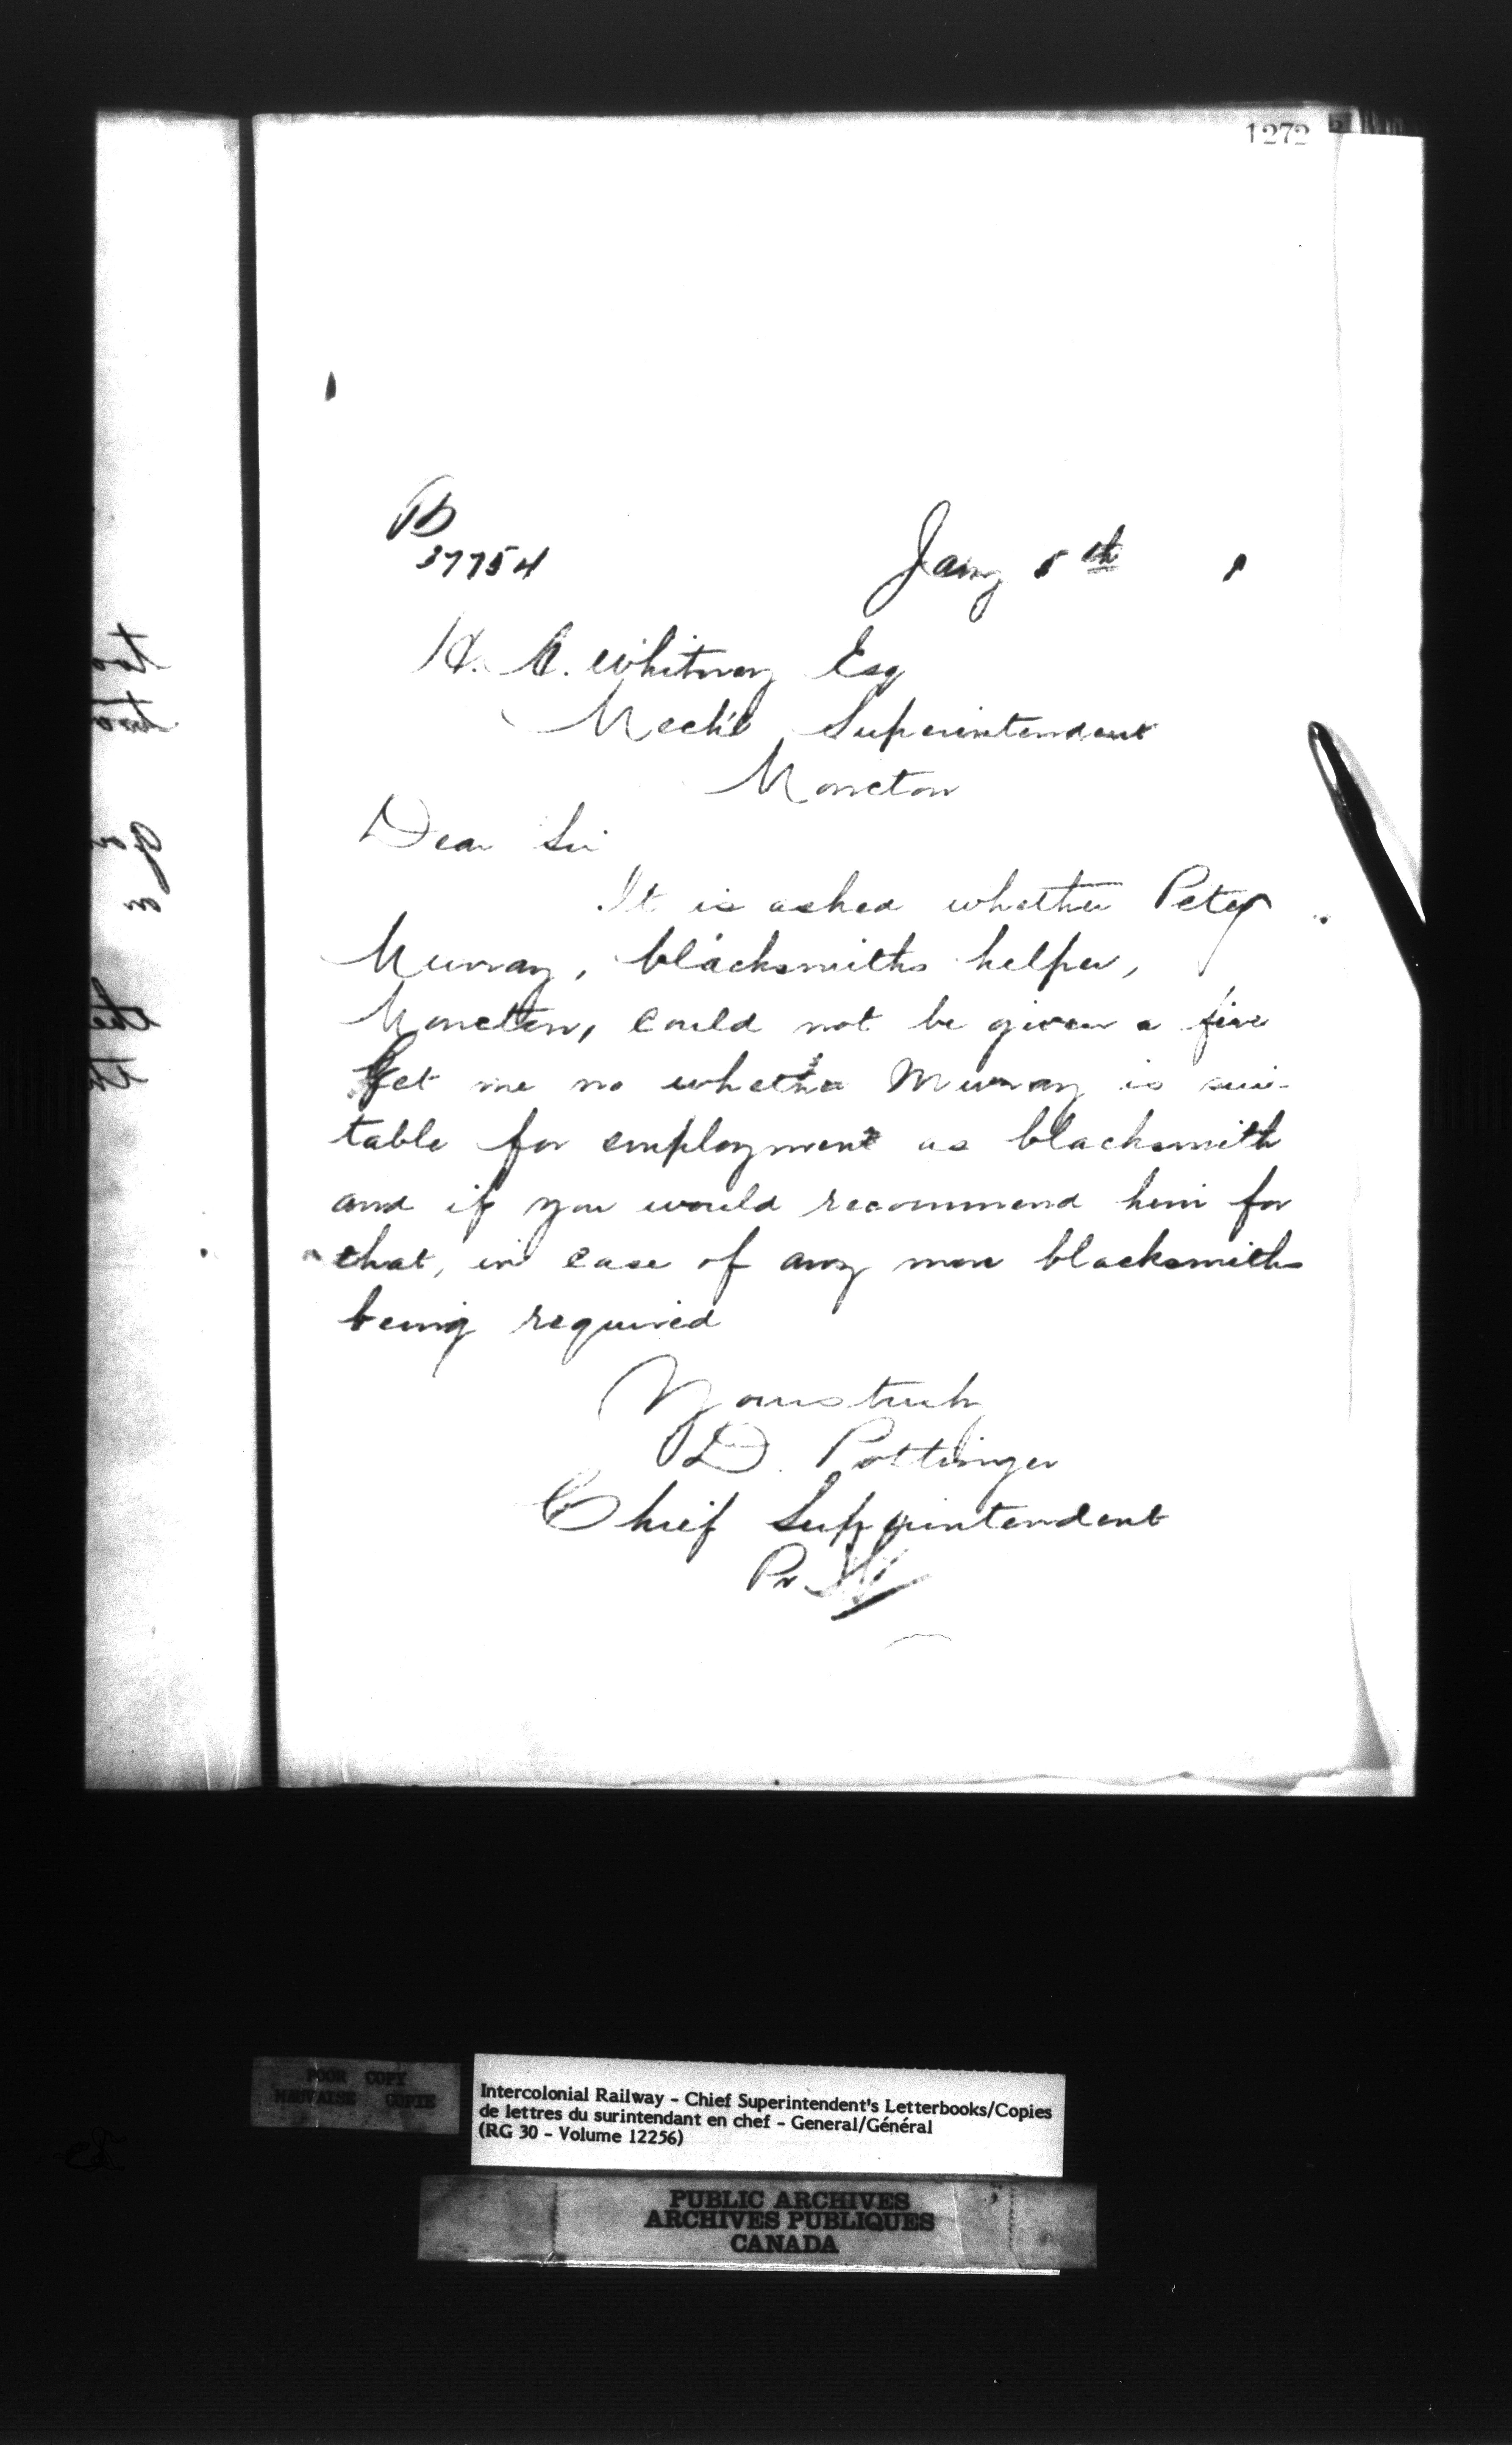 1272
37754
Jany 5th
H. A. Whitney Esq
Mech'l Superintendent
Moncton
Dear Sir
It is asked whether Peter
Murray, blacksmiths helper,
Moncton, could not be given a fire
Let me no whether Murray is sui-
table for employment as blacksmith
and if you would recommend him for
that, in case of any more blacksmiths
being required
Yours truly
D. Pottinger
Chief Superintendent
Pr
POOR COPY
MAUVAISE COPIE
Intercolonial Railway - Chief Superintendent's Letterbooks/Copies
de lettres du surintendant en chef - General/Général
(RG 30 - Volume 12256)
PUBLIC ARCHIVES
ARCHIVES PUBLIQUES
CANADA